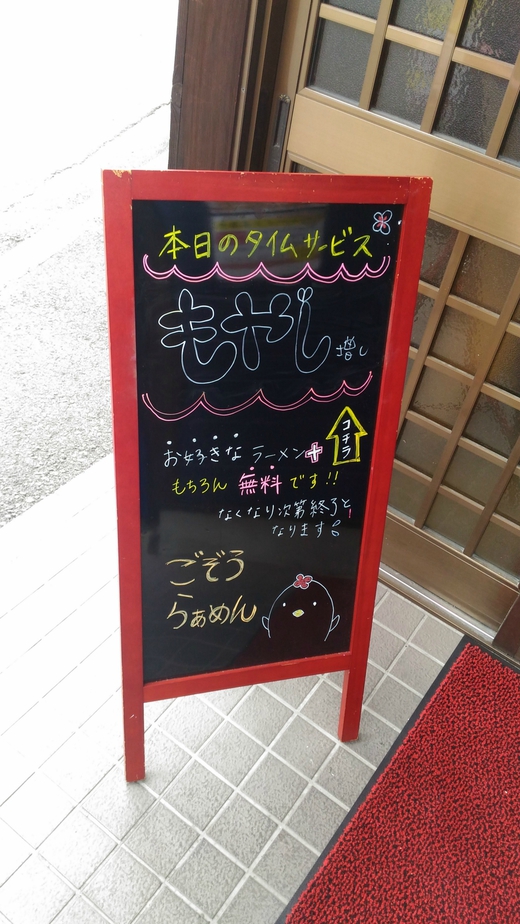 本日のタイムサービス
もやし 増し
コチラ
お好きなラーメン+
もちろん 無料です!!
なくなり次第終了と
なります!
ごぞう
らぁめん